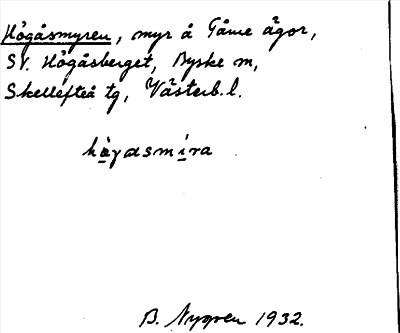 Högåsmyren, myr å Gåme ägor,
SV. Högåsberget, Byske m,
Skellefteå tg, Västerb. l.
hàɣasmíra
B. Nygren 1932.